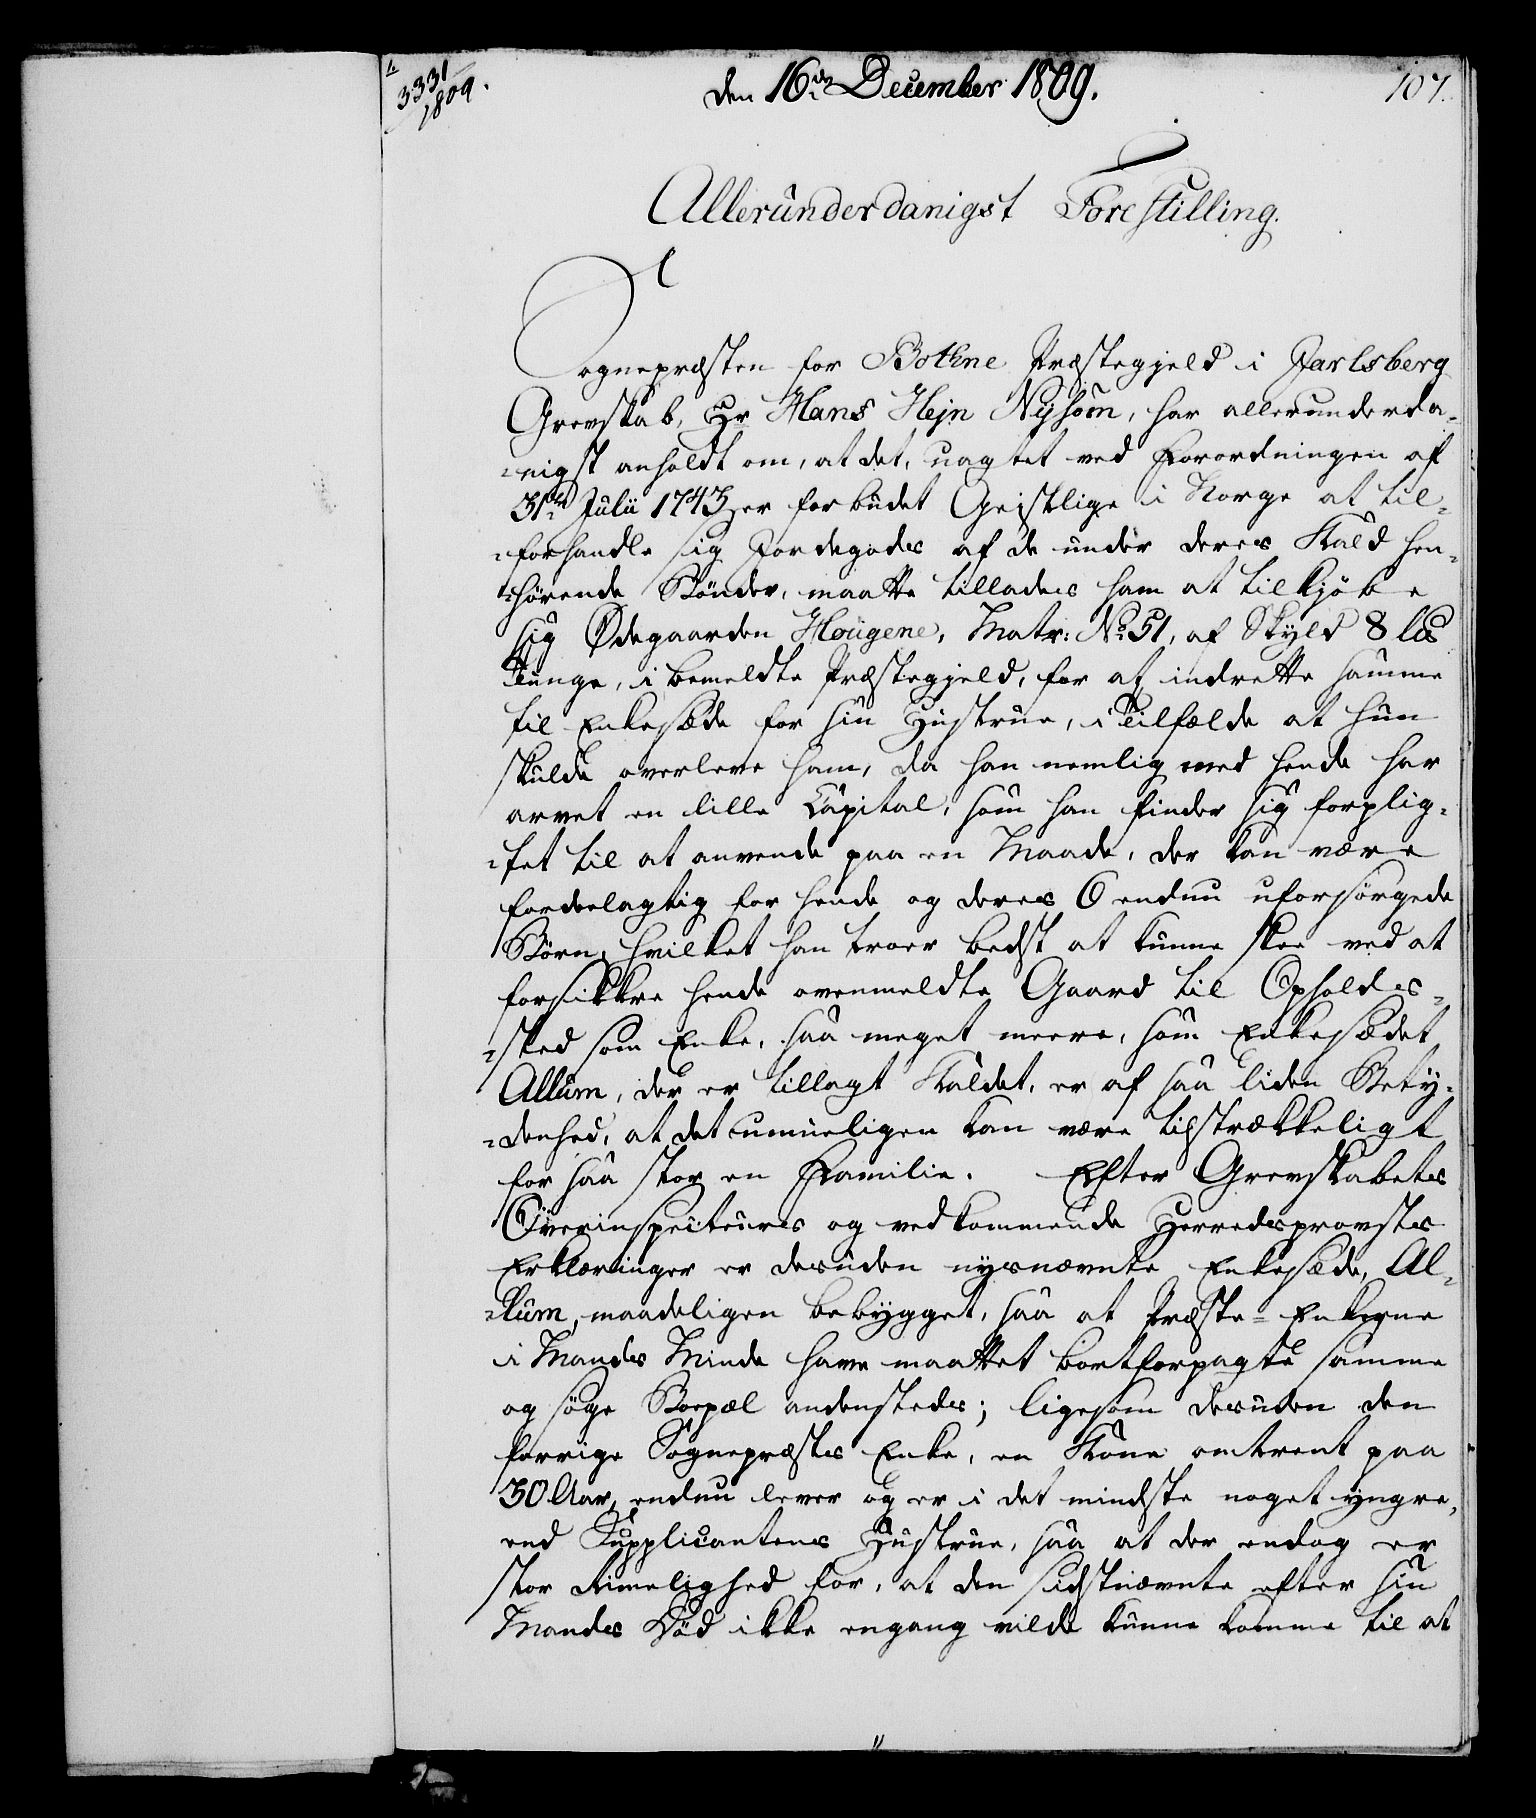 3331/1809.
den 16de December 1809.
107.
Allerunderdanigst Forestilling.
Sognepræsten for Bothne Præstegjeld i Jarlsberg
Grevskab, Hr Hans Hejn Nysöm, har allerunderda-
-nigst anholdt om, at det, uagtet ved Forordningen af
31te Julii 1743 er forbudet Geistlige i Norge at til-
-forhandle sig Jordegods af de under deres Kald hen-
-hørende Bönder, maatte tillades ham at tilkjöbe
sig Ødegaarden Hougene, Matr: No 51, af Skyld 8 lb
Tunge, i bemeldte Præstegjeld, for at indrette samme
til Enkesæde for sin Hustrue, i Tilfælde at hun
skulde overleve ham, da han nemlig med hende har
arvet en lille Capital, som han finder sig forplig-
-tet til at anvende paa en Maade, der kan være
fordeelagtig for hende og deres 6 endnu uforsörgede
Börn, hvilket han troer bedst at kunne skee ved at
forsikkre hende ovenmeldte Gaard til Opholds-
-sted som Enke, saa meget meere, som Enkesædet
Allum, der er tillagt Kaldet, er af saa liden Bety-
-denhed, at det umueligen kan være tilstrækkeligt
for saa stor en Familie. Efter Grevskabets
Overinspecteurs og vedkommende Herredsprovstes
Erklæringer er desuden nysnævnte Enkesæde, Al-
-lum, maadeligen bebygget, saa at Præste-Enkerne
i Mands Minde have maattet bortforpagte samme
og søge Boepæl andenstedes; ligesom desuden den
forrige Sognepræstes Enke, en Kone omtrent paa
30 Aar, endnu lever og er i det mindste noget yngre,
end Supplicantens Hustrue, saa at der endog er
stor Rimelighed for, at den sidstnævnte efter sin
Mandes Död ikke engang vilde kunne komme til at